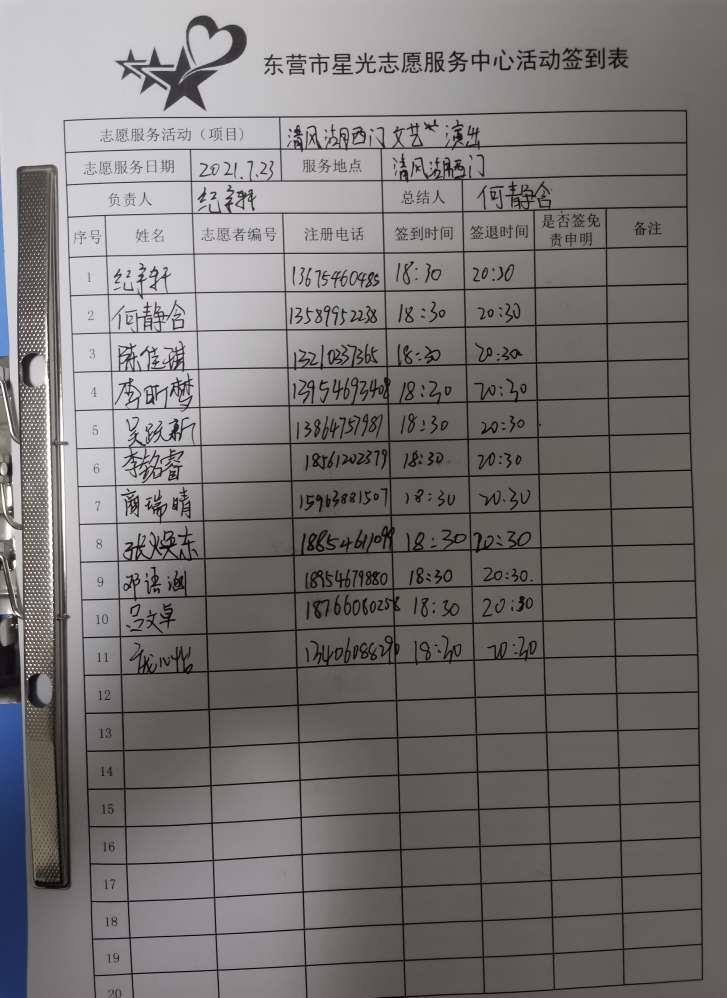 东营市星光志愿服务中心活动签到表
志愿服务活动（项目） 清风湖西门文艺 演出
志愿服务日期 2021.7.23 服务地点 清风湖西门
负责人 纪宇轩 总结人 何静含
序号 姓名 志愿者编号 注册电话 签到时间 签退时间 是否签免责申明 备注
1 纪宇轩 13675460485 18:30 20:30
2 何静含 13589952238 18:30 20:30
3 陈佳琪 13210337365 18:30 20:30
4 李昕梦 13954693408 18:30 20:30
5 吴跃新 13864757987 18:30 20:30
6 李铭睿 18561202379 18:30 20:30
7 商瑞晴 15963881507 18:30 20:30
8 张焕东 18854611099 18:30 20:30
9 邓语涵 18954679880 18:30 20:30
10 吕文卓 18766080258 18:30 20:30
11 13406088290 18:30 20:30
12
13
14
15
16
17
18
19
20